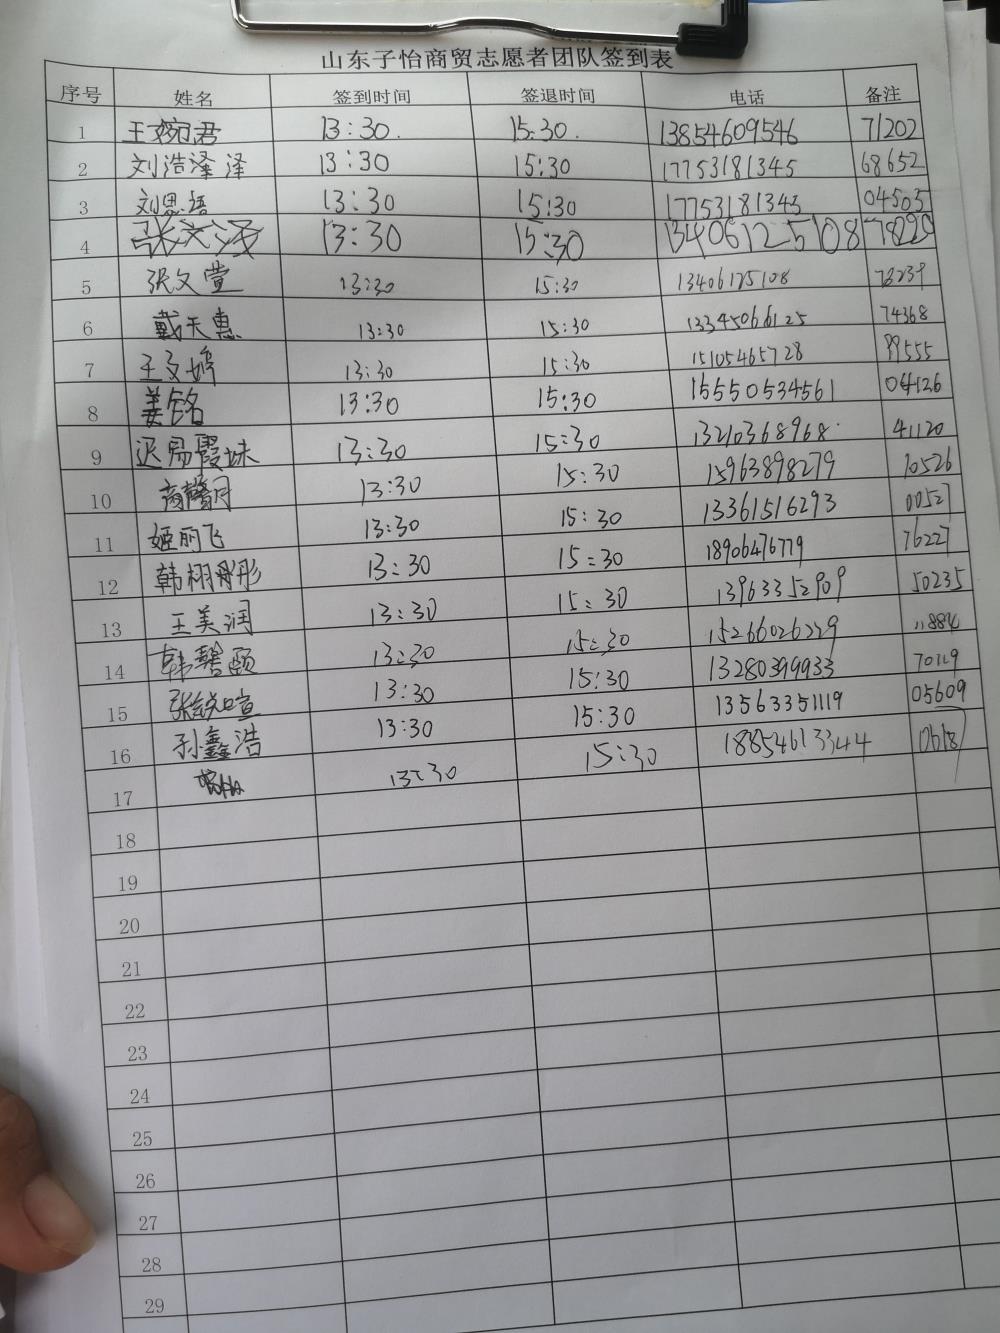 山东子怡商贸志愿者团队签到表
序号 姓名 签到时间 签退时间 电话 备注
1 王婉君 13:30. 15:30. 13854609546 71202
2 刘浩泽 泽 13:30 15:30 17753181345 68652
3 刘思语 13:30 15:30 17753181345 04505
4 张文泽 13:30 15:30 13406125108 78229
5 张文萱 13:30 15:30 13406125108
6 戴天惠 13:30 15:30 13345066125 74368
7 王文婷 13:30 15:30 15105465728 99555
8 姜铭 13:30 15:30 15550534561 04126
9 迟易霞妹 13:30 15:30 13210368968 41120
10 商馨月 13:30 15:30 15963898279 10526
11 姬丽飞 13:30 15:30 13361516293 00527
12 韩栩彤 13:30 15:30 18906476779 76227
13 王美润 13:30 15:30 13963352909 50235
14 韩馨颐 13:30 15:30 15266026229
15 张锐喧 13:30 15:30 13280399933 70119
16 孙鑫浩 13:30 15:30 13563351119 05609
17 13:30 15:30 18854613344
18
19
20
21
22
23
24
25
26
27
28
29